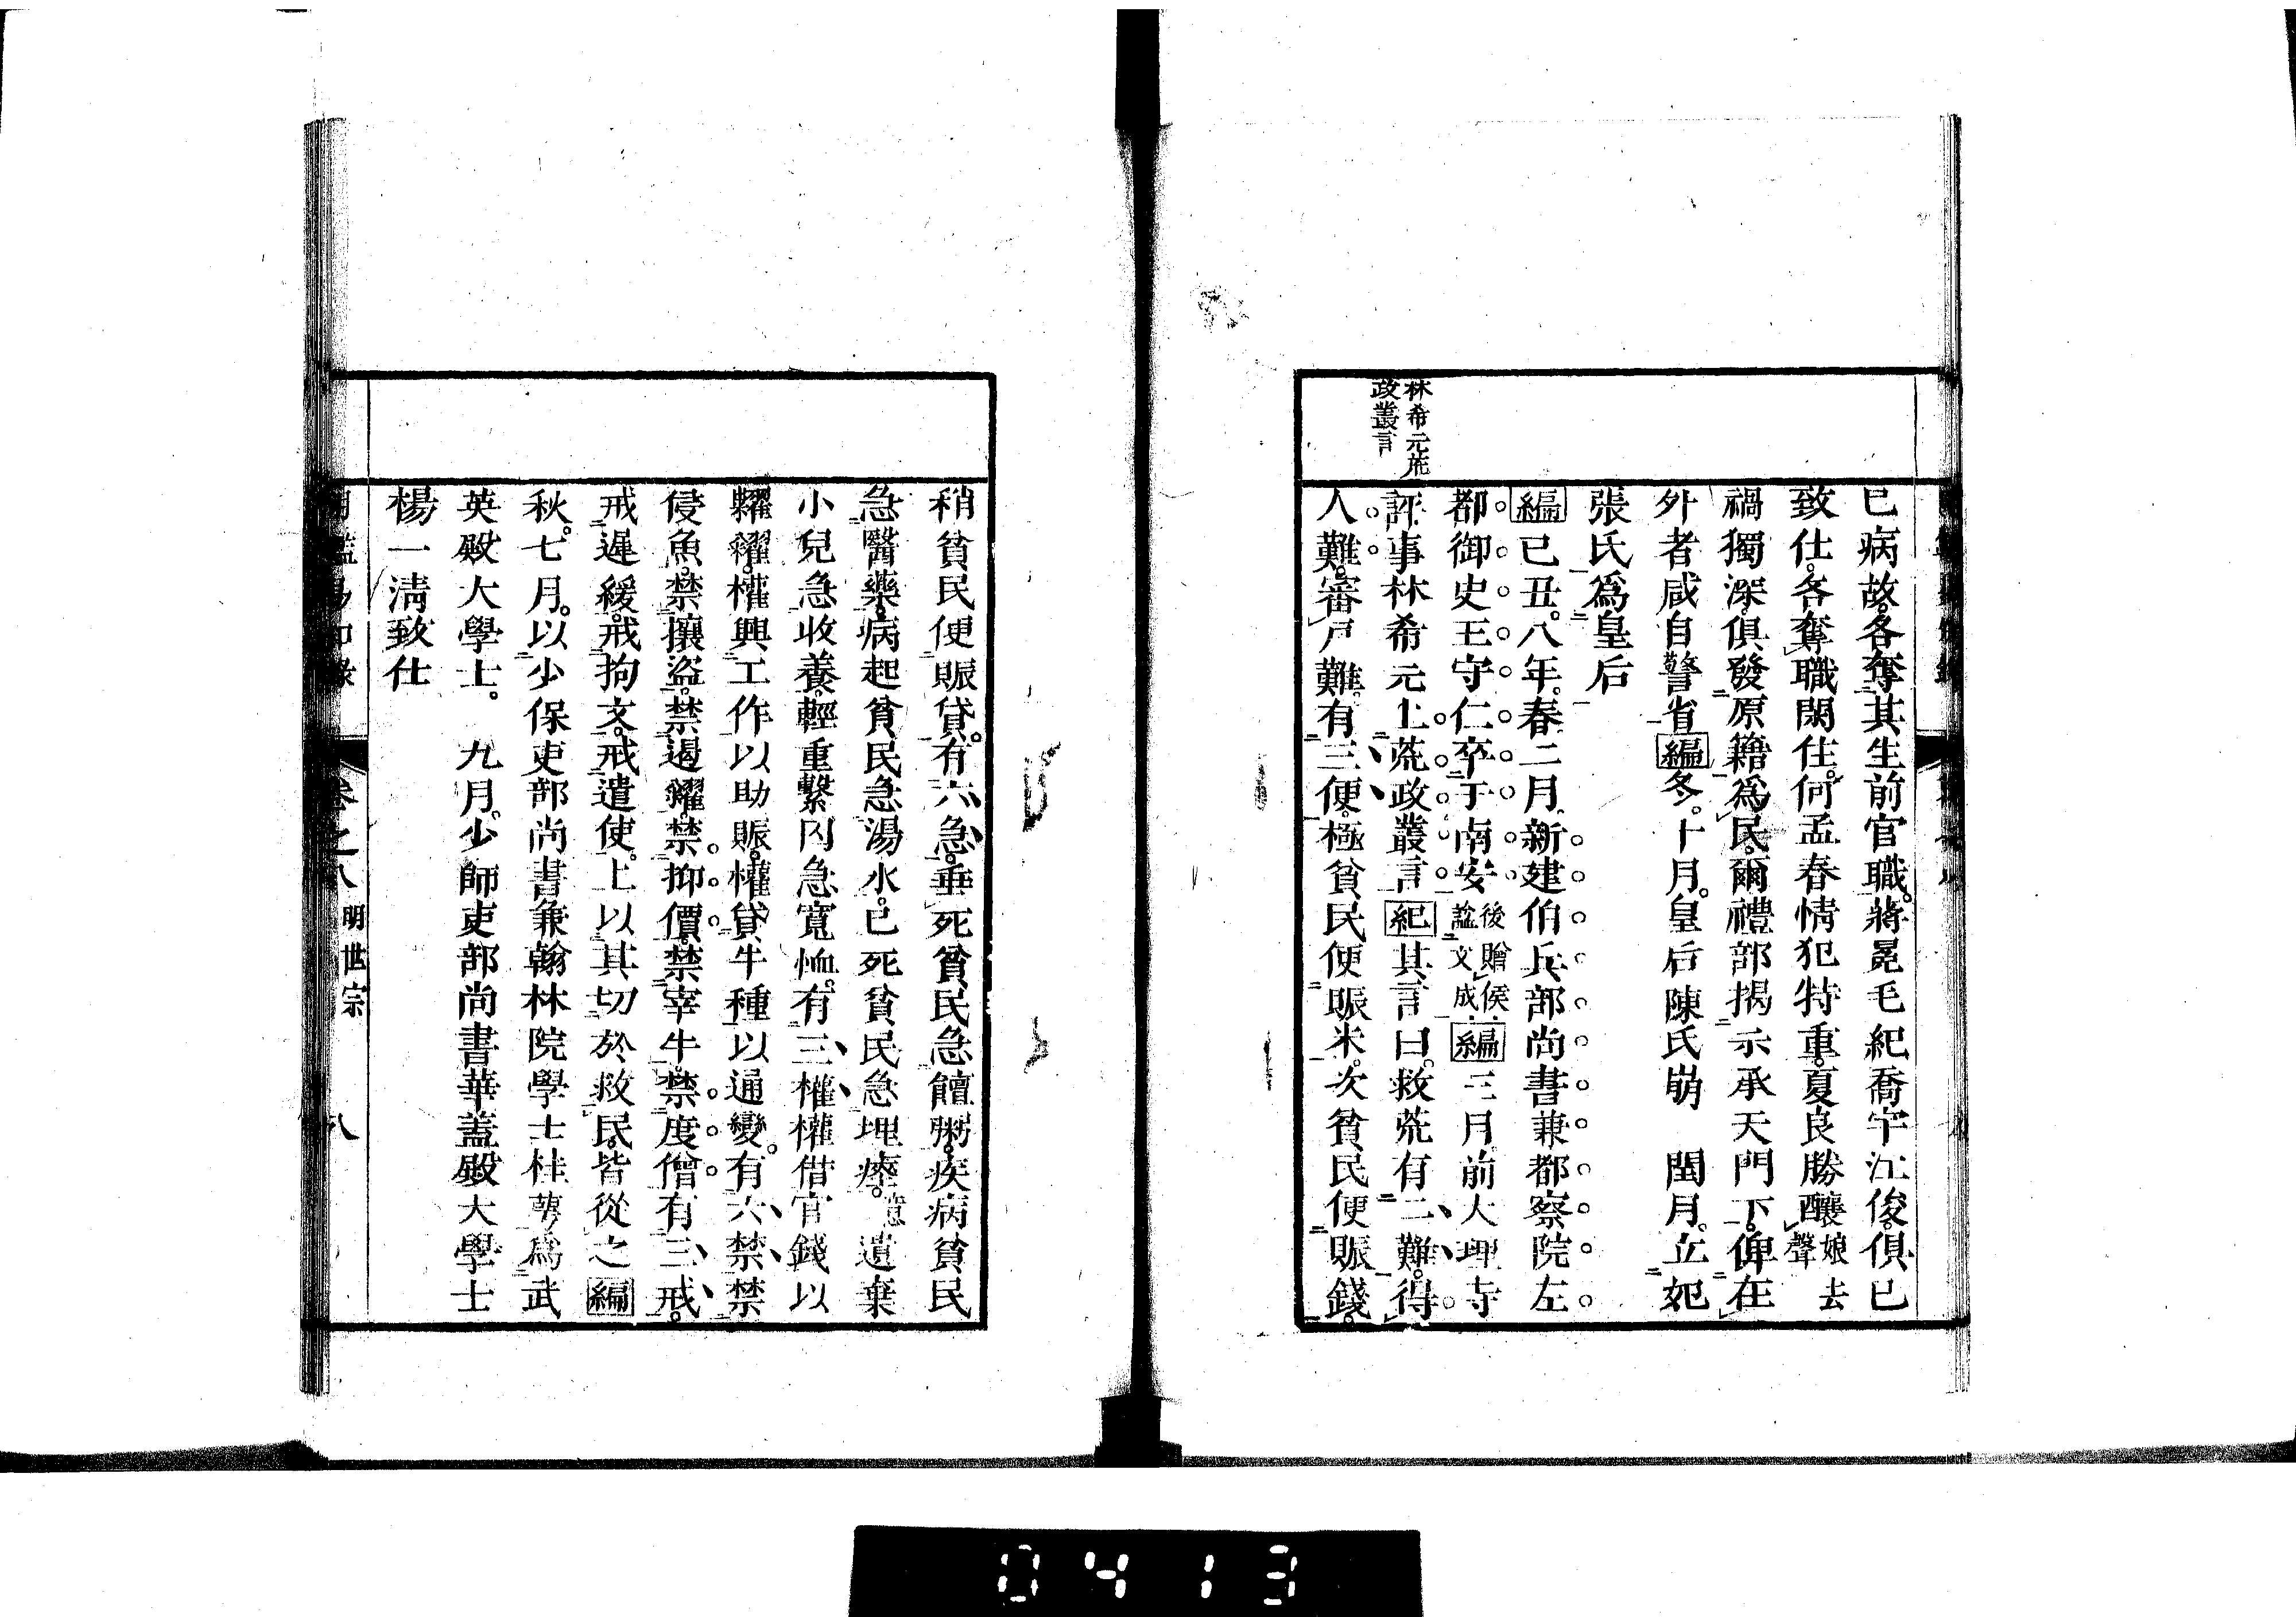 已病故各奪其生前官職蔣冕毛紀喬宇江俊俱已
致仕各奪職閑住何孟春情犯特重夏良勝釀娘去聲
禍獨深俱發原籍爲民爾禮部揭示承天門下俾在
外者咸自警省編冬十月皇后陳氏崩　閏月立妃
張氏爲皇后
編己丑八年春二月新建伯兵部尚書兼都察院左
都御史王守仁卒于南安後贈侯諡文成編三月前大理寺
林希元荒
政叢言
評事林希元上荒政叢言紀其言曰救荒有二難得
人難審戶難有三便極貧民便賑米次貧民便賑錢
稍貧民便賑貸有六急垂死貧民急饘粥疾病貧民
急醫藥病起貧民急湯水已死貧民急埋瘞遺棄
小兒急收養輕重繫囚急寬恤有三權權借官錢以
糶糴權興工作以助賑權貸牛種以通變有六禁禁
侵魚禁攘盜禁遏糴禁抑價禁宰牛禁度僧有三戒
戒遲緩戒拘文戒遣使上以其切於救民皆從之編
秋七月以少保吏部尚書兼翰林院學士桂萼爲武
英殿大學士　九月少師吏部尚書華蓋殿大學士
楊一清致仕
卷之八　明世宗　八
0413